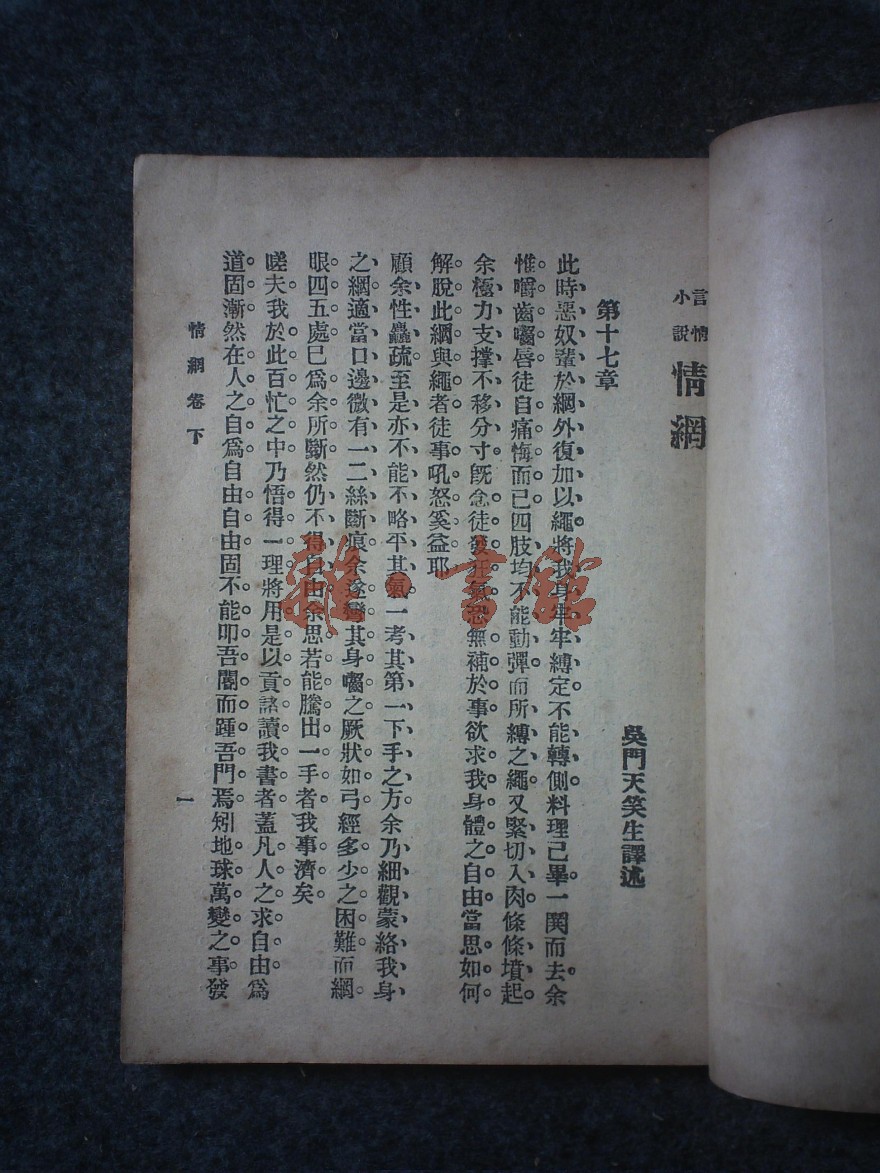 言情小説 情網
吳門天笑生譯述
第十七章
此時惡奴輩於網外復加以繩將我身牢牢縛定不能轉側料理已畢一鬨而去余
惟嚼齒囓唇徒自痛悔而已四肢均不能動彈而所縛之繩又緊切入肉條條墳起
余極力支撐不移分寸旣念徒發狂氣恐無補於事欲求我身體之自由當思如何
解脫此網與繩者徒事吼怒奚益耶
顧余性麤疏至是亦不能不略平其氣一考其第一下手之方余乃細觀蒙絡我身
之網適當口邊微有一二絲斷痕余遂彎其身囓之厥狀如弓經多少之困難而網
眼四五處已爲余所斷然仍不得自由余思若能騰出一手者我事濟矣
嗟夫我於此百忙之中乃悟得一理將用是以貢諸讀我書者蓋凡人之求自由爲
道固漸然在人之自爲自由自由固不能叩吾闥而踵吾門焉矧地球萬變之事發
情網卷下
一
雜·書館